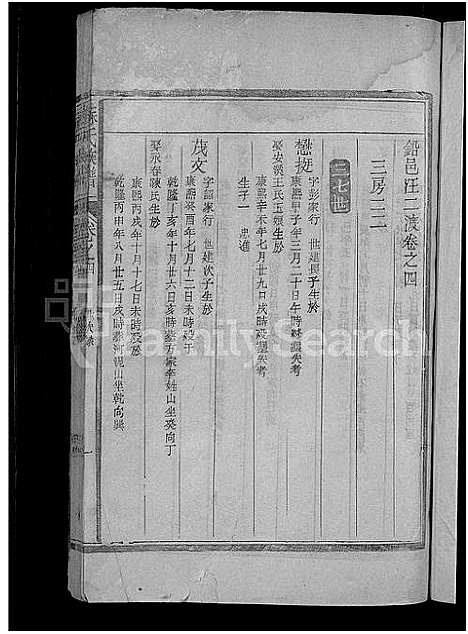 鉛邑汪二渡卷之四
三房二二
二七世
懋挺
字彭家行 世建長子生於
康熙甲子年三月二十日午時終歿失考
娶安溪王氏玉娘生於
康熙辛未年七月廿九日戌時歿歿失考
生子一 忠進
茂文
字 家行 世建次子生於
康熙癸酉年七月十二日未時歿于
乾隆丁亥年十月廿六日亥時葬方家李姓山坐癸向丁
娶永春陳氏生於
康熙丙戌年十月十七日未時歿於
乾隆丙申年八月廿五日戌時葬河 山坐乾向巽
蘇氏族譜
卷之四
FamilySearch